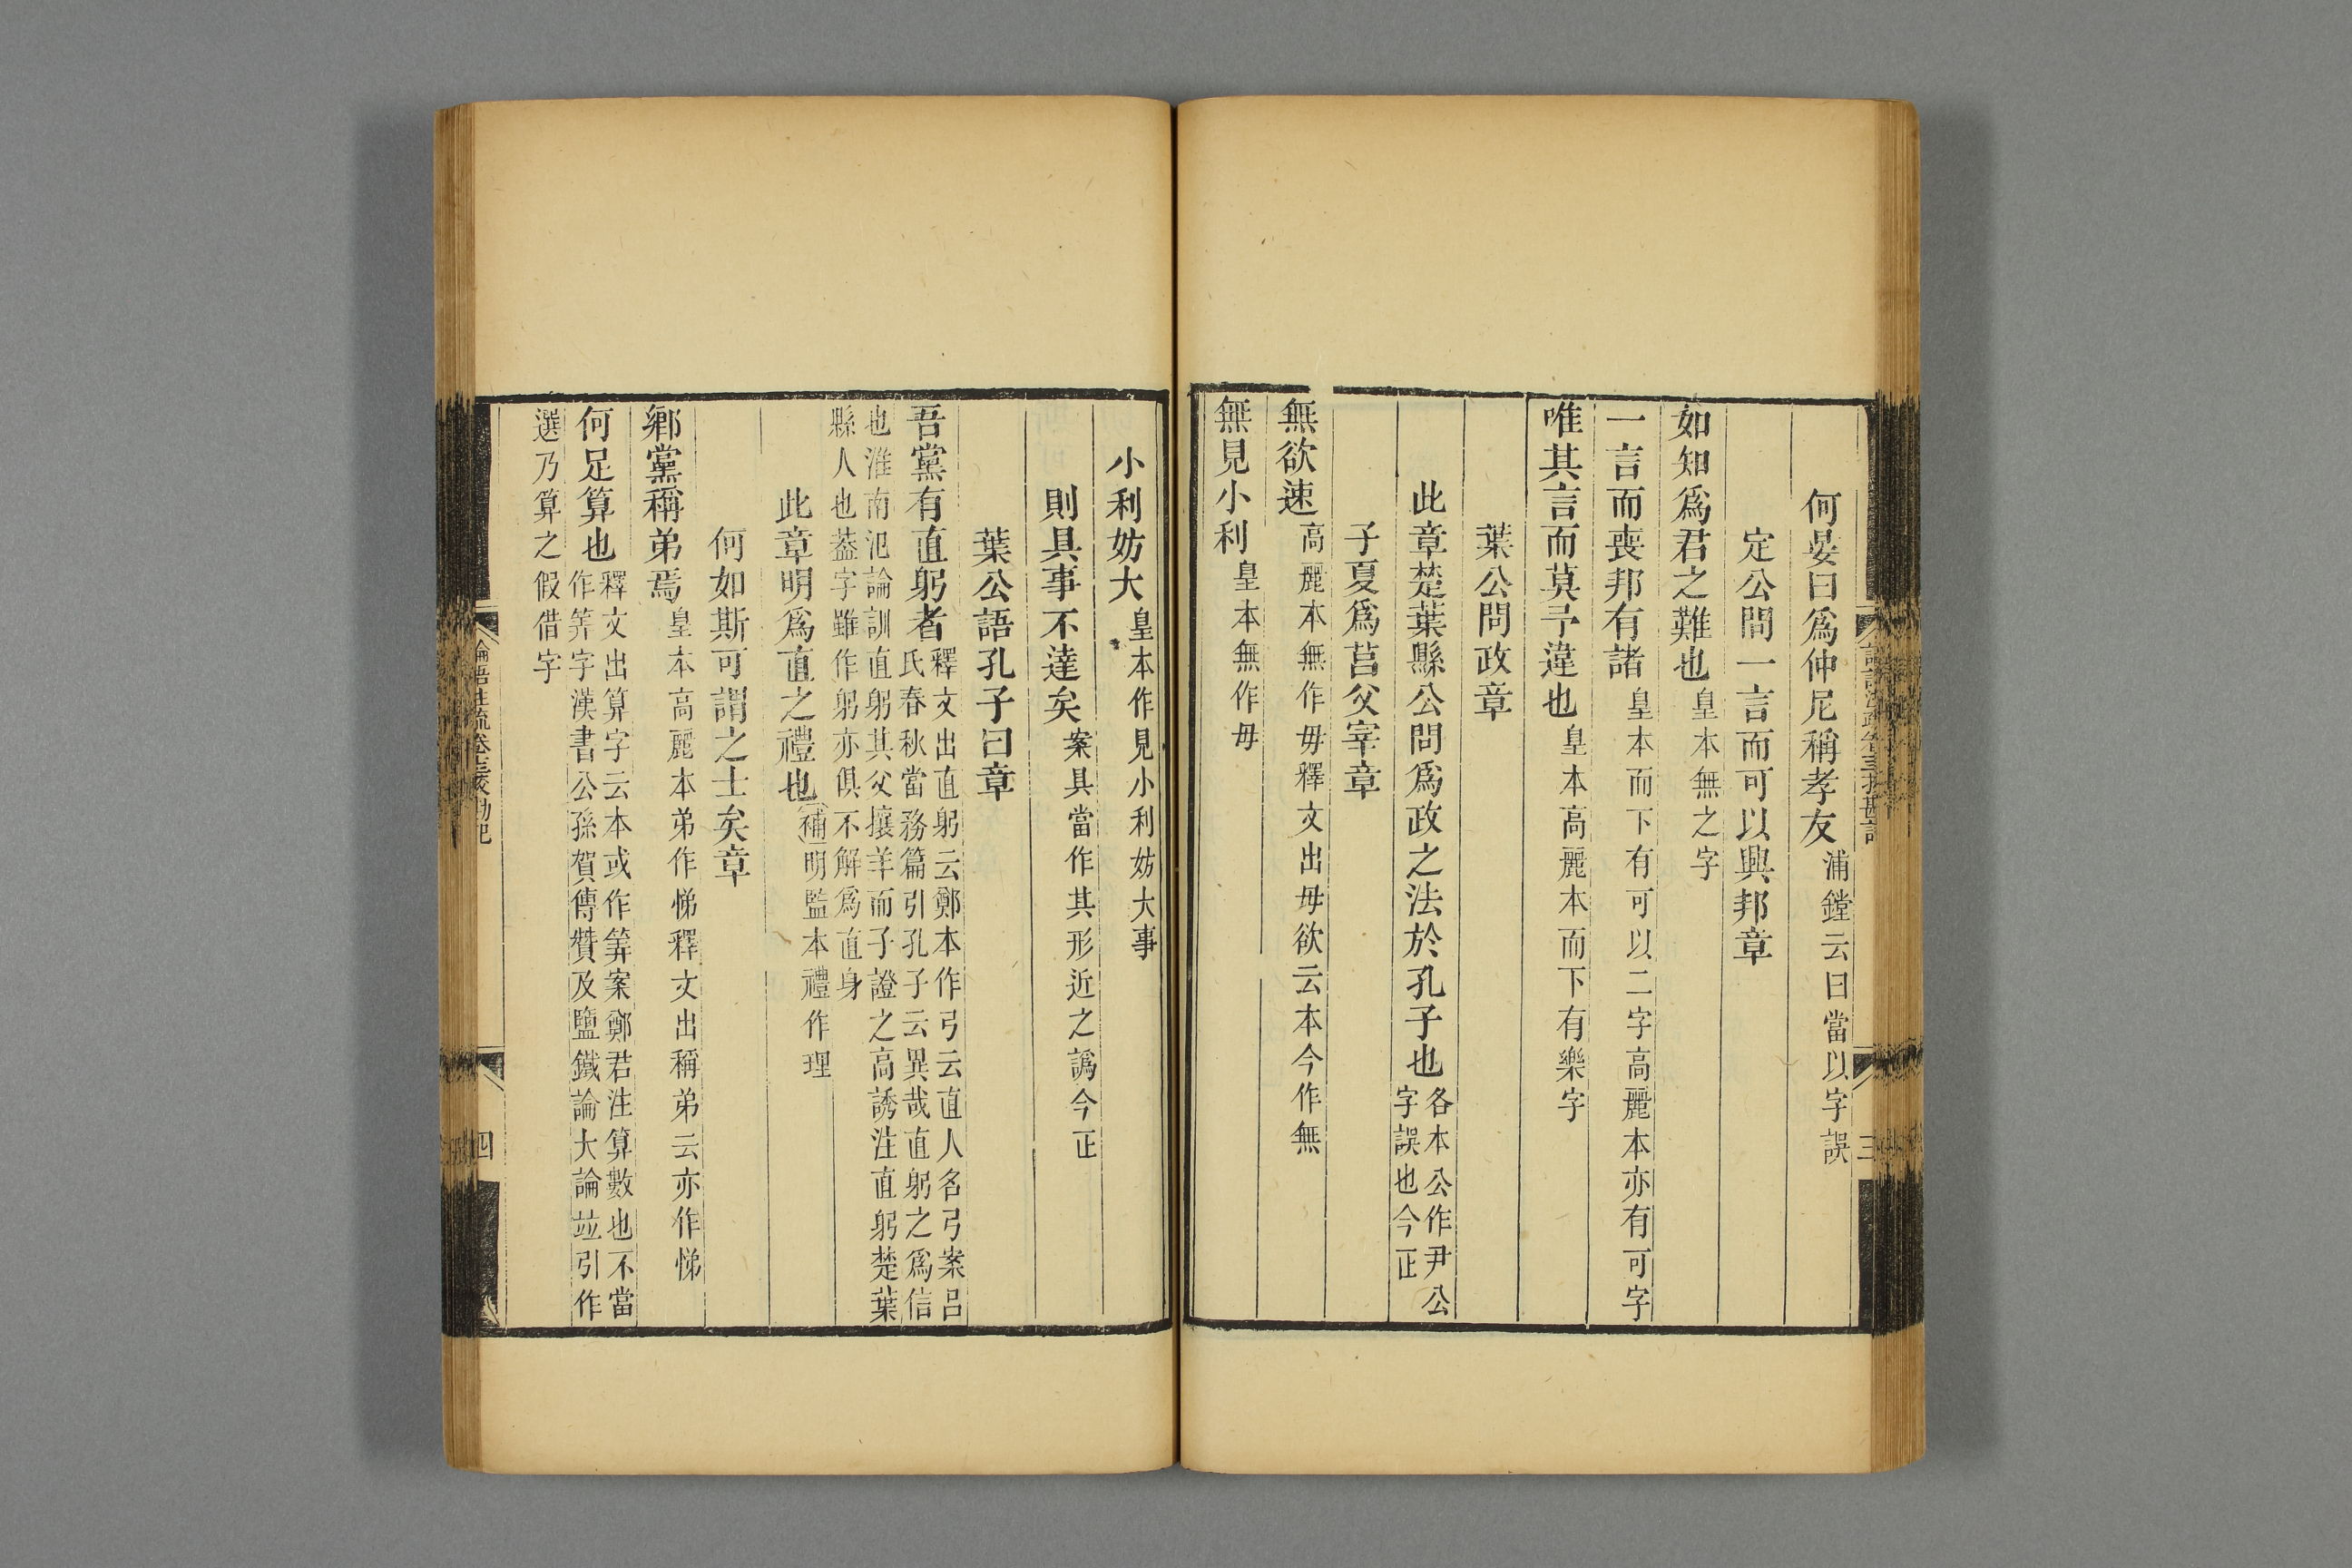 何晏曰爲仲尼稱孝友浦鏜云曰當以字誤
定公問一言而可以興邦章
如知爲君之難也皇本無之字
一言而喪邦有諸皇本而下有可以二字高麗本亦有可字
唯其言而莫予違也皇本高麗本而下有樂字
葉公問政章
此章楚葉縣公問爲政之法於孔子也各本公作尹公
字誤也今正
子夏爲莒父宰章
無欲速高麗本無作毋釋文出毋欲云本今作無
無見小利皇本無作毋
小利妨大皇本作見小利妨大事
則具事不達矣案具當作其形近之譌今正
葉公語孔子曰章
吾黨有直躬者釋文出直躬云鄭本作弓云直人名弓案呂
氏春秋當務篇引孔子云異哉直躬之爲信
也淮南氾論訓直躬其父攘羊而子證之高誘注直躬楚葉
縣人也葢字雖作躬亦俱不解爲直身
此章明爲直之禮也補明監本禮作理
何如斯可謂之士矣章
鄉黨稱弟焉皇本高麗本弟作悌釋文出稱弟云亦作悌
何足算也釋文出算字云本或作筭案鄭君注算數也不當
作筭字漢書公孫賀傳贊及鹽鐵論大論竝引作
選乃算之假借字
論語注疏卷十三校勘記
四